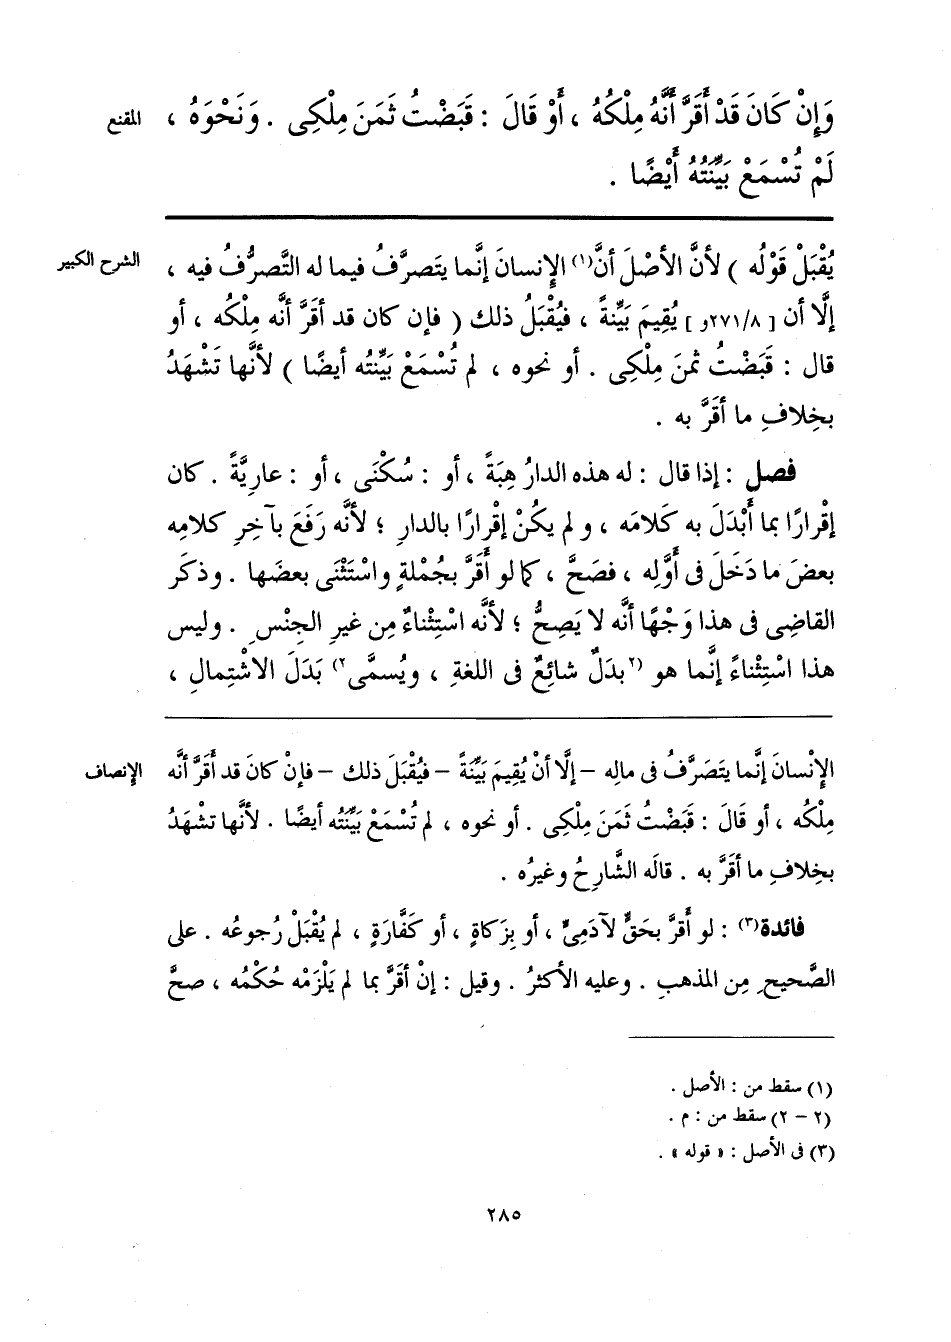 وَإِنْ كَانَ قَدْ أَقَرَّ أَنَّهُ مِلْكُهُ ، أَوْ قَالَ : قَبَضْتُ ثَمَنَ مِلْكِى . وَنَحْوَهُ ،
المقنع
لَمْ تُسْمَعْ بَيِّنَتُهُ أَيْضًا .
يُقْبَلْ قَوْلُه ) لأنَّ الأصْلَ أنَّ(١) الإِنسانَ إنَّما يتَصرَّفُ فيما له التَّصرُّفُ فيه ،
الشرح الكبير
إلَّا أن [ ٢٧١/٨و ] يُقِيمَ بَيِّنةً ، فيُقْبَلُ ذلك ( فإن كان قد أقَرَّ أنَّه مِلْكُه ، أو
قال : قَبَضْتُ ثمنَ مِلْكِى . أو نحوه ، لم تُسْمَعْ بَيِّنتُه أيضًا ) لأنها تَشْهَدُ
بخِلافِ ما أقَرَّ به .
فصل : إذا قال : له هذه الدارُ هِبَةً ، أو : سُكْنَى ، أو : عارِيَّةً . كان
إقْرارًا بما أَبْدَلَ به كَلامَه ، ولم يكُنْ إقْرارًا بالدارِ ؛ لأنَّه رَفَعَ بآخِرِ كلامِه
بعضَ ما دَخَلَ فى أوَّلِه ، فصَحَّ ، كما لو أقَرَّ بجُمْلةٍ واسْتَثْنَى بعضَها . وذكَر
القاضِى فى هذا وَجْهًا أنَّه لا يَصِحُّ ؛ لأنَّه اسْتِثْناءٌ مِن غيرِ الجِنْسِ . وليس
هذا اسْتِثْناءً إنَّما هو (٢بدَلٌ شائِعٌ فى اللغةِ ، ويُسمَّى٢) بَدَلَ الاشْتِمالِ ،
الإِنْسانَ إنَّما يتَصَرَّفُ فى مالِه – إلَّا أنْ يُقِيمَ بَيِّنَةً – فيُقْبَلَ ذلك – فإنْ كانَ قد أقَرَّ أنَّه
الإنصاف
مِلْكُه ، أو قَالَ : قَبَضْتُ ثَمَنَ مِلْكِى . أو نحوه ، لم تُسْمَعْ بَيِّنَتُه أيضًا . لأنَّها تشْهَدُ
بخِلافِ ما أقَرَّ به . قالَه الشَّارِحُ وغيرُه .
فائدة(٣) : لو أقَرَّ بحَقٍّ لآدَمِىٍّ ، أو بِزَكاةٍ ، أو كَفَّارَةٍ ، لم يُقْبَلْ رُجوعُه . على
الصَّحيحِ مِن المذهبِ . وعليه الأكثرُ . وقيل : إنْ أقَرَّ بما لم يَلْزَمْه حُكْمُه ، صحَّ
(١) سقط من : الأصل .
(٢ – ٢) سقط من : م .
(٣) فى الأصل : « قوله » .
٢٨٥